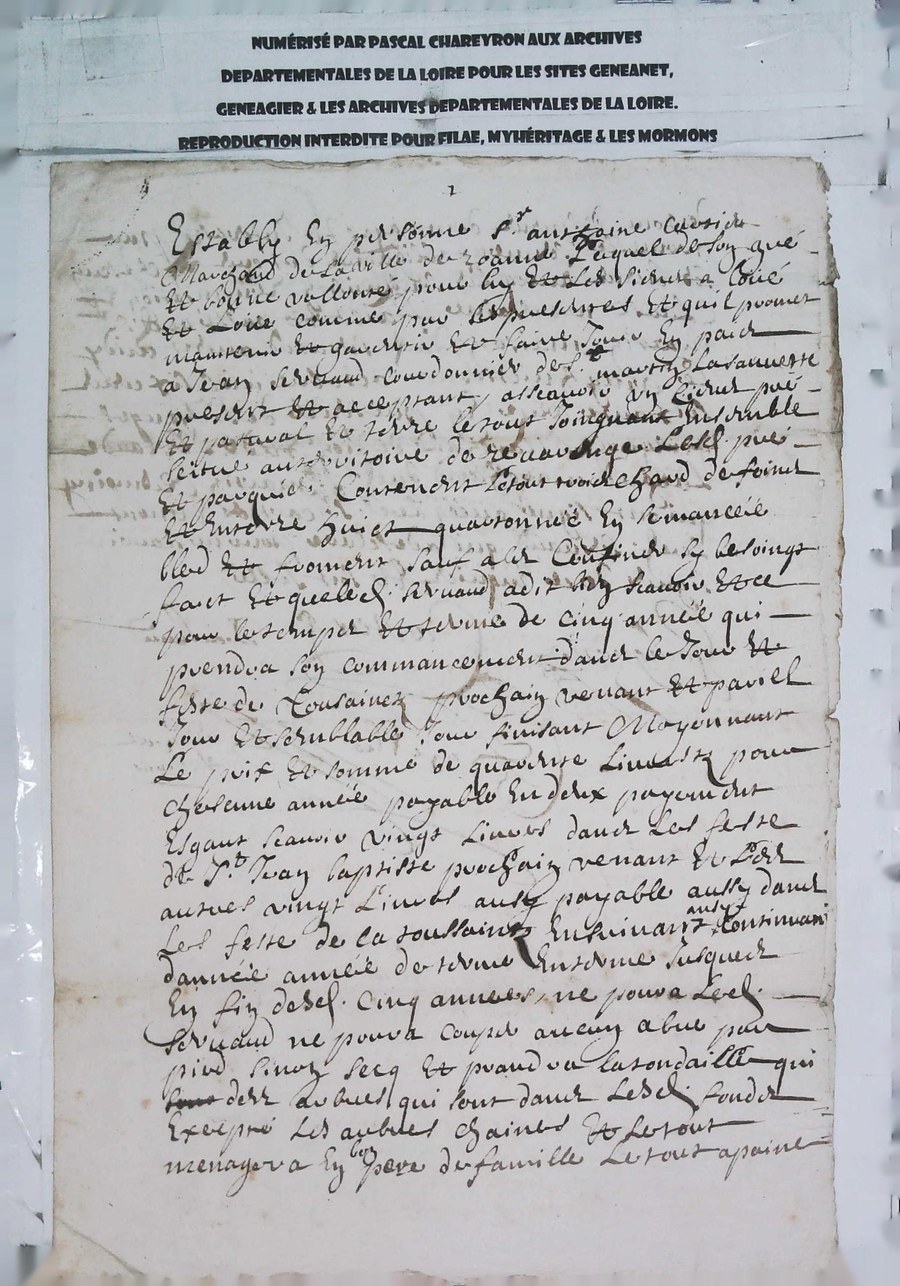 NUMÉRISÉ PAR PASCAL CHAREYRON AUX ARCHIVES
DEPARTEMENTALES DE LA LOIRE POUR LES SITES GENEANET,
GENEAGIER & LES ARCHIVES DEPARTEMENTALES DE LA LOIRE.
REPRODUCTION INTERDITE POUR FILAE, MYHÉRITAGE & LES MORMONS
1
Estably En personne Sr. anthoine
Marchand de la ville de roanne Lequel de son gré
Et bonne vollonté pour luy Et Les siens a Loué
Et Loue comme par Les presentes Et quil promet
maintenir Et garentir Et faire Jouir En paix
a Jean seruaud courdonnier de St. martin La sauueste
present Et acceptant, assçauoir un pré
Et pasural Et terre le tout Joingnant Ensemble
scitué au territoire de Lesd. pré
Et Contenent Le tout trois chard de foint
Et En terre huict quartonnée En semancée
bled Et froment sauf a les Confiner sy besoingt
faict Et que led. seruaud a dit bien sçauoir Et ce
pour le temps Et terme de cinq année qui
prendra son commancement dans le Jour Et
feste de Tousaintz prochain venant Et pariel
Jour Et semblable Jour finisant Moyennant
Le prix Et somme de quarente Liures pour
chescune année payable En deux payement
Esgaut scauoir vingt Liures dans Les feste
de St. Jean baptisse prochain venant Et Les
autres vingt Liures aussy payable aussy dans
Les feste de la toussaintz Ensuiuant aussy Continuant
dannée année de terme En terme Jusques
En fin desd. Cinq annees, ne poura Led.
seruaud ne poura couper aucun abre par
pied sinon secq Et prandra la tondaille qui
sont des arbres qui sont dans Lesd. fondz
Excepté Les arbres chaines Et Le tout
menagera En bon pere de famille Le tout a paine